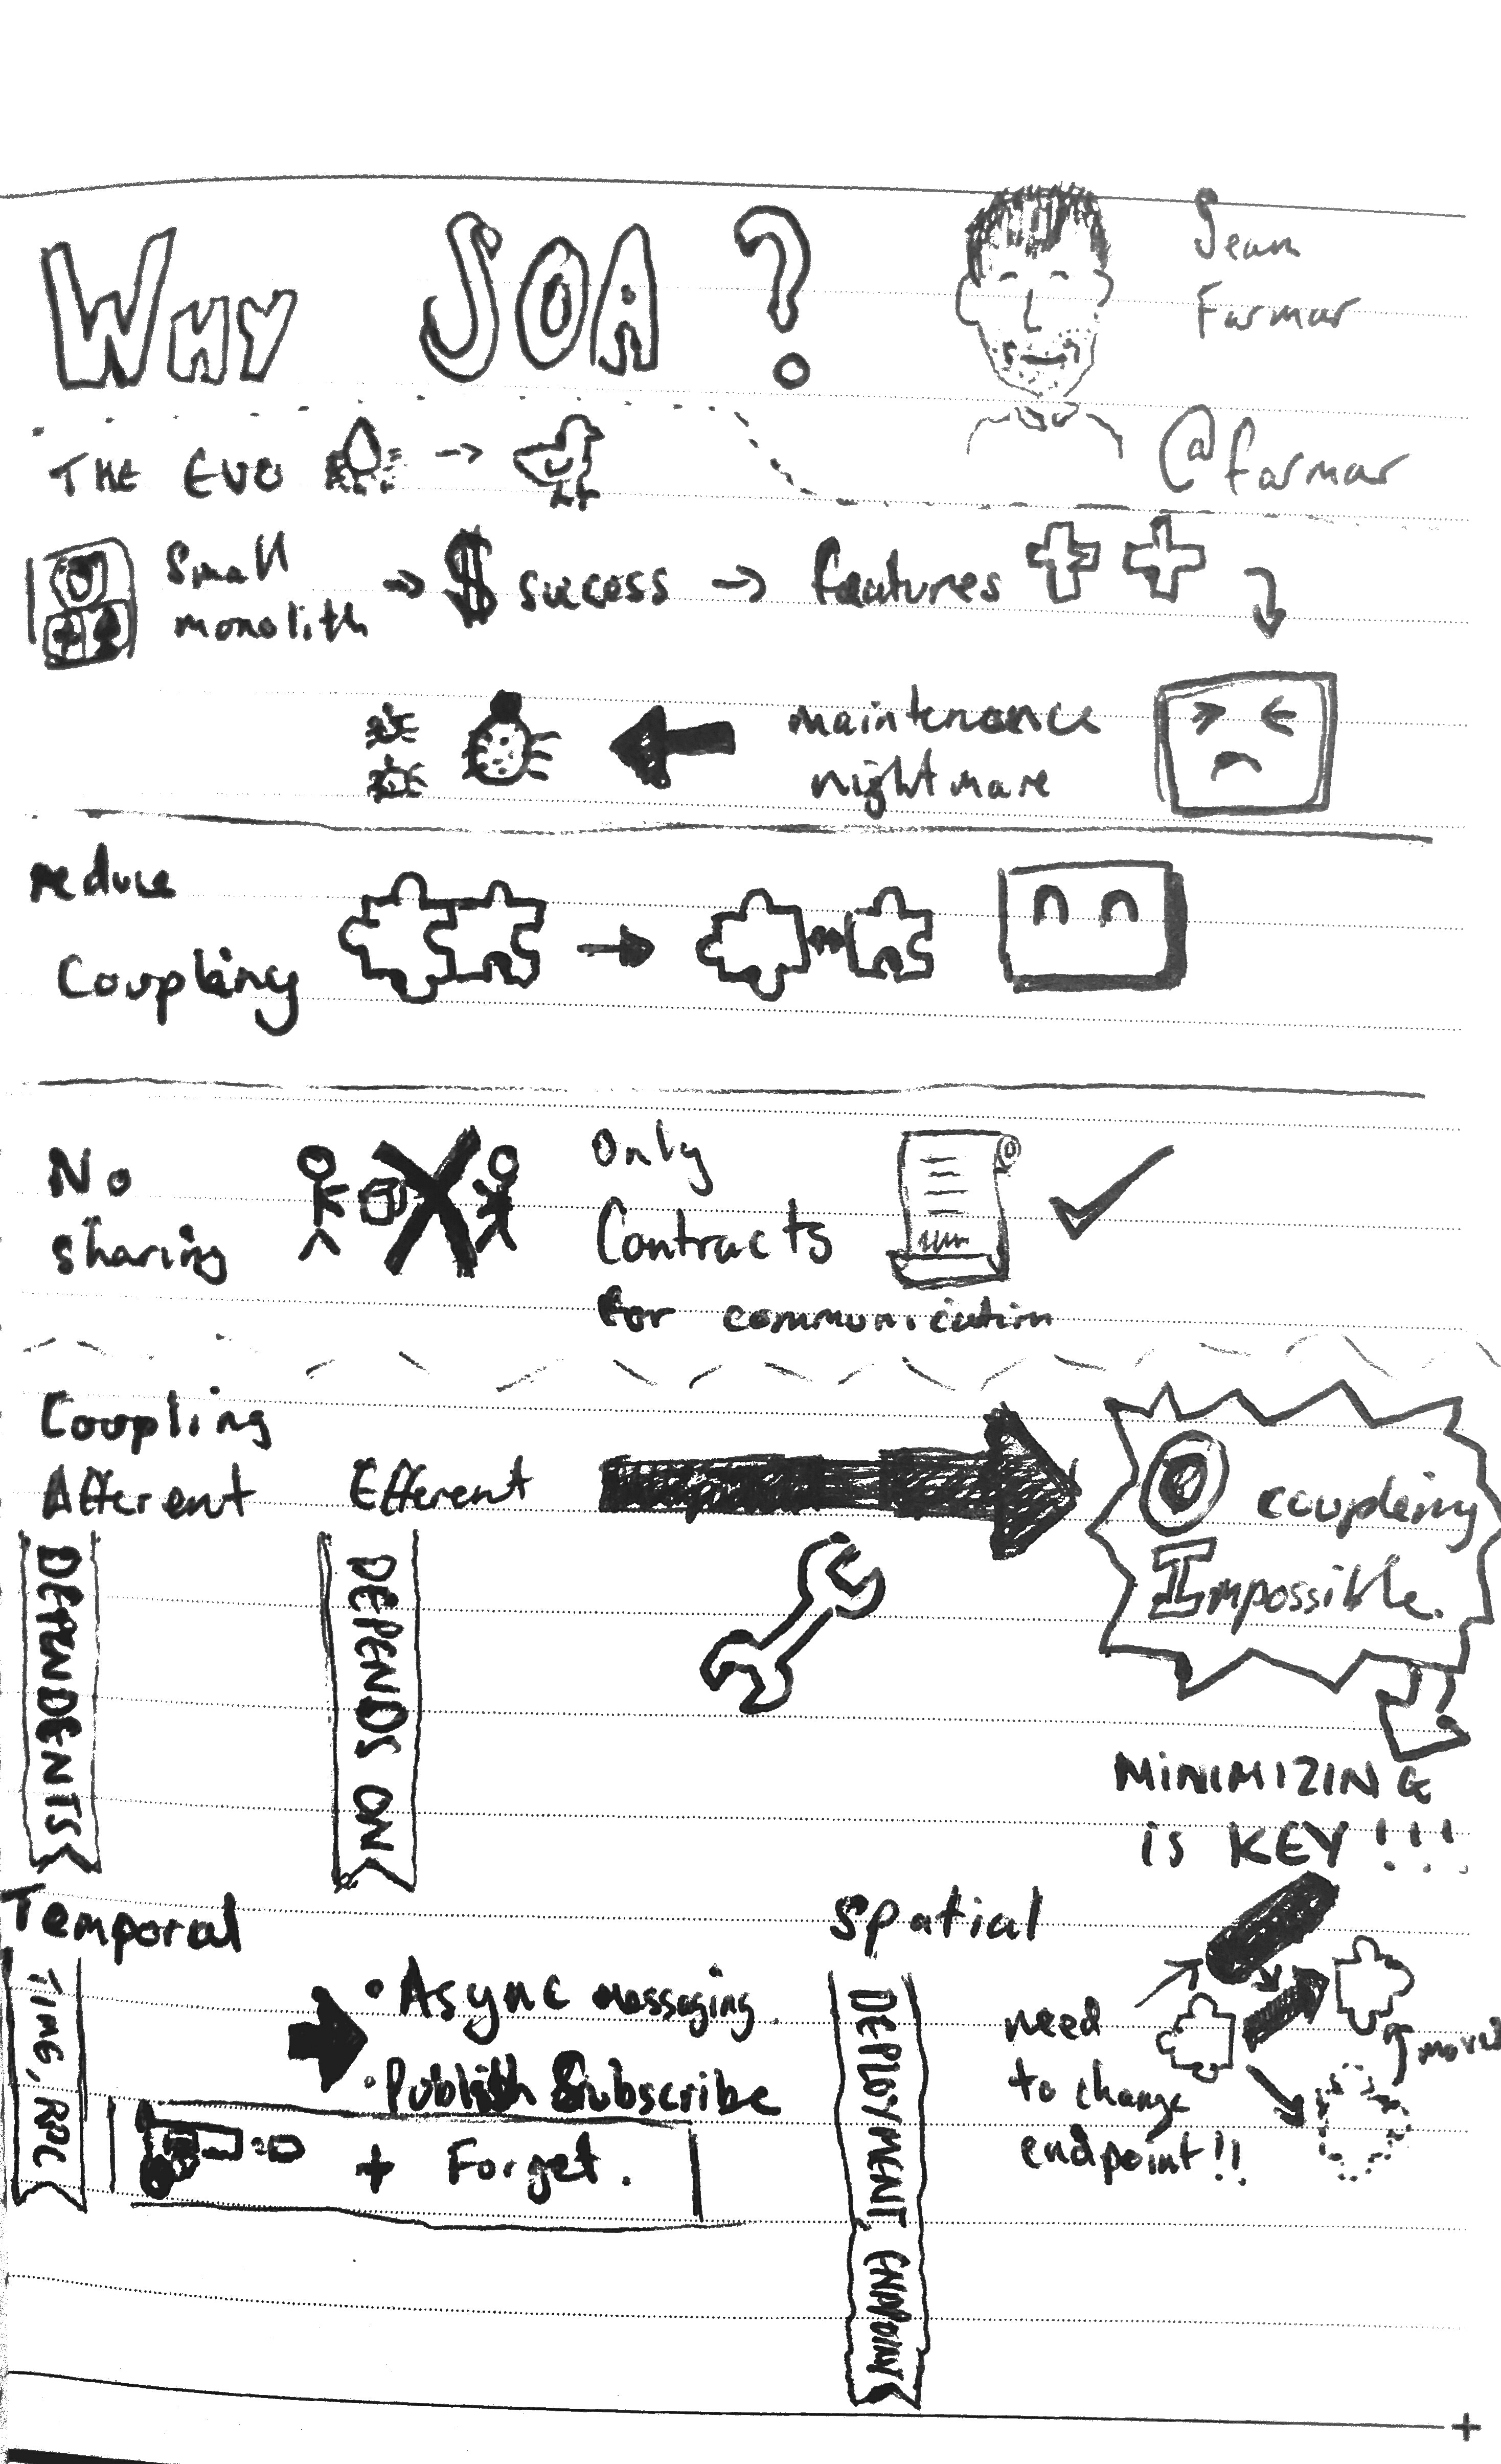 WHY SOA ?
Sean
Farmar
@farmar
THE EVO
Small
monolith
$ success
features
maintenance
nightmare
reduce
Coupling
No
sharing
Only
Contracts
for communication
Coupling
Afferent
DEPENDENTS
Efferent
DEPENDS ON
0 coupling
Impossible.
MINIMIZING
is KEY !!!
Temporal
TIME, RPC
• Async messaging.
• Publish Subscribe
+ Forget.
Spatial
DEPLOYMENT, ENDPOINT
need
to change
endpoint!!
moved